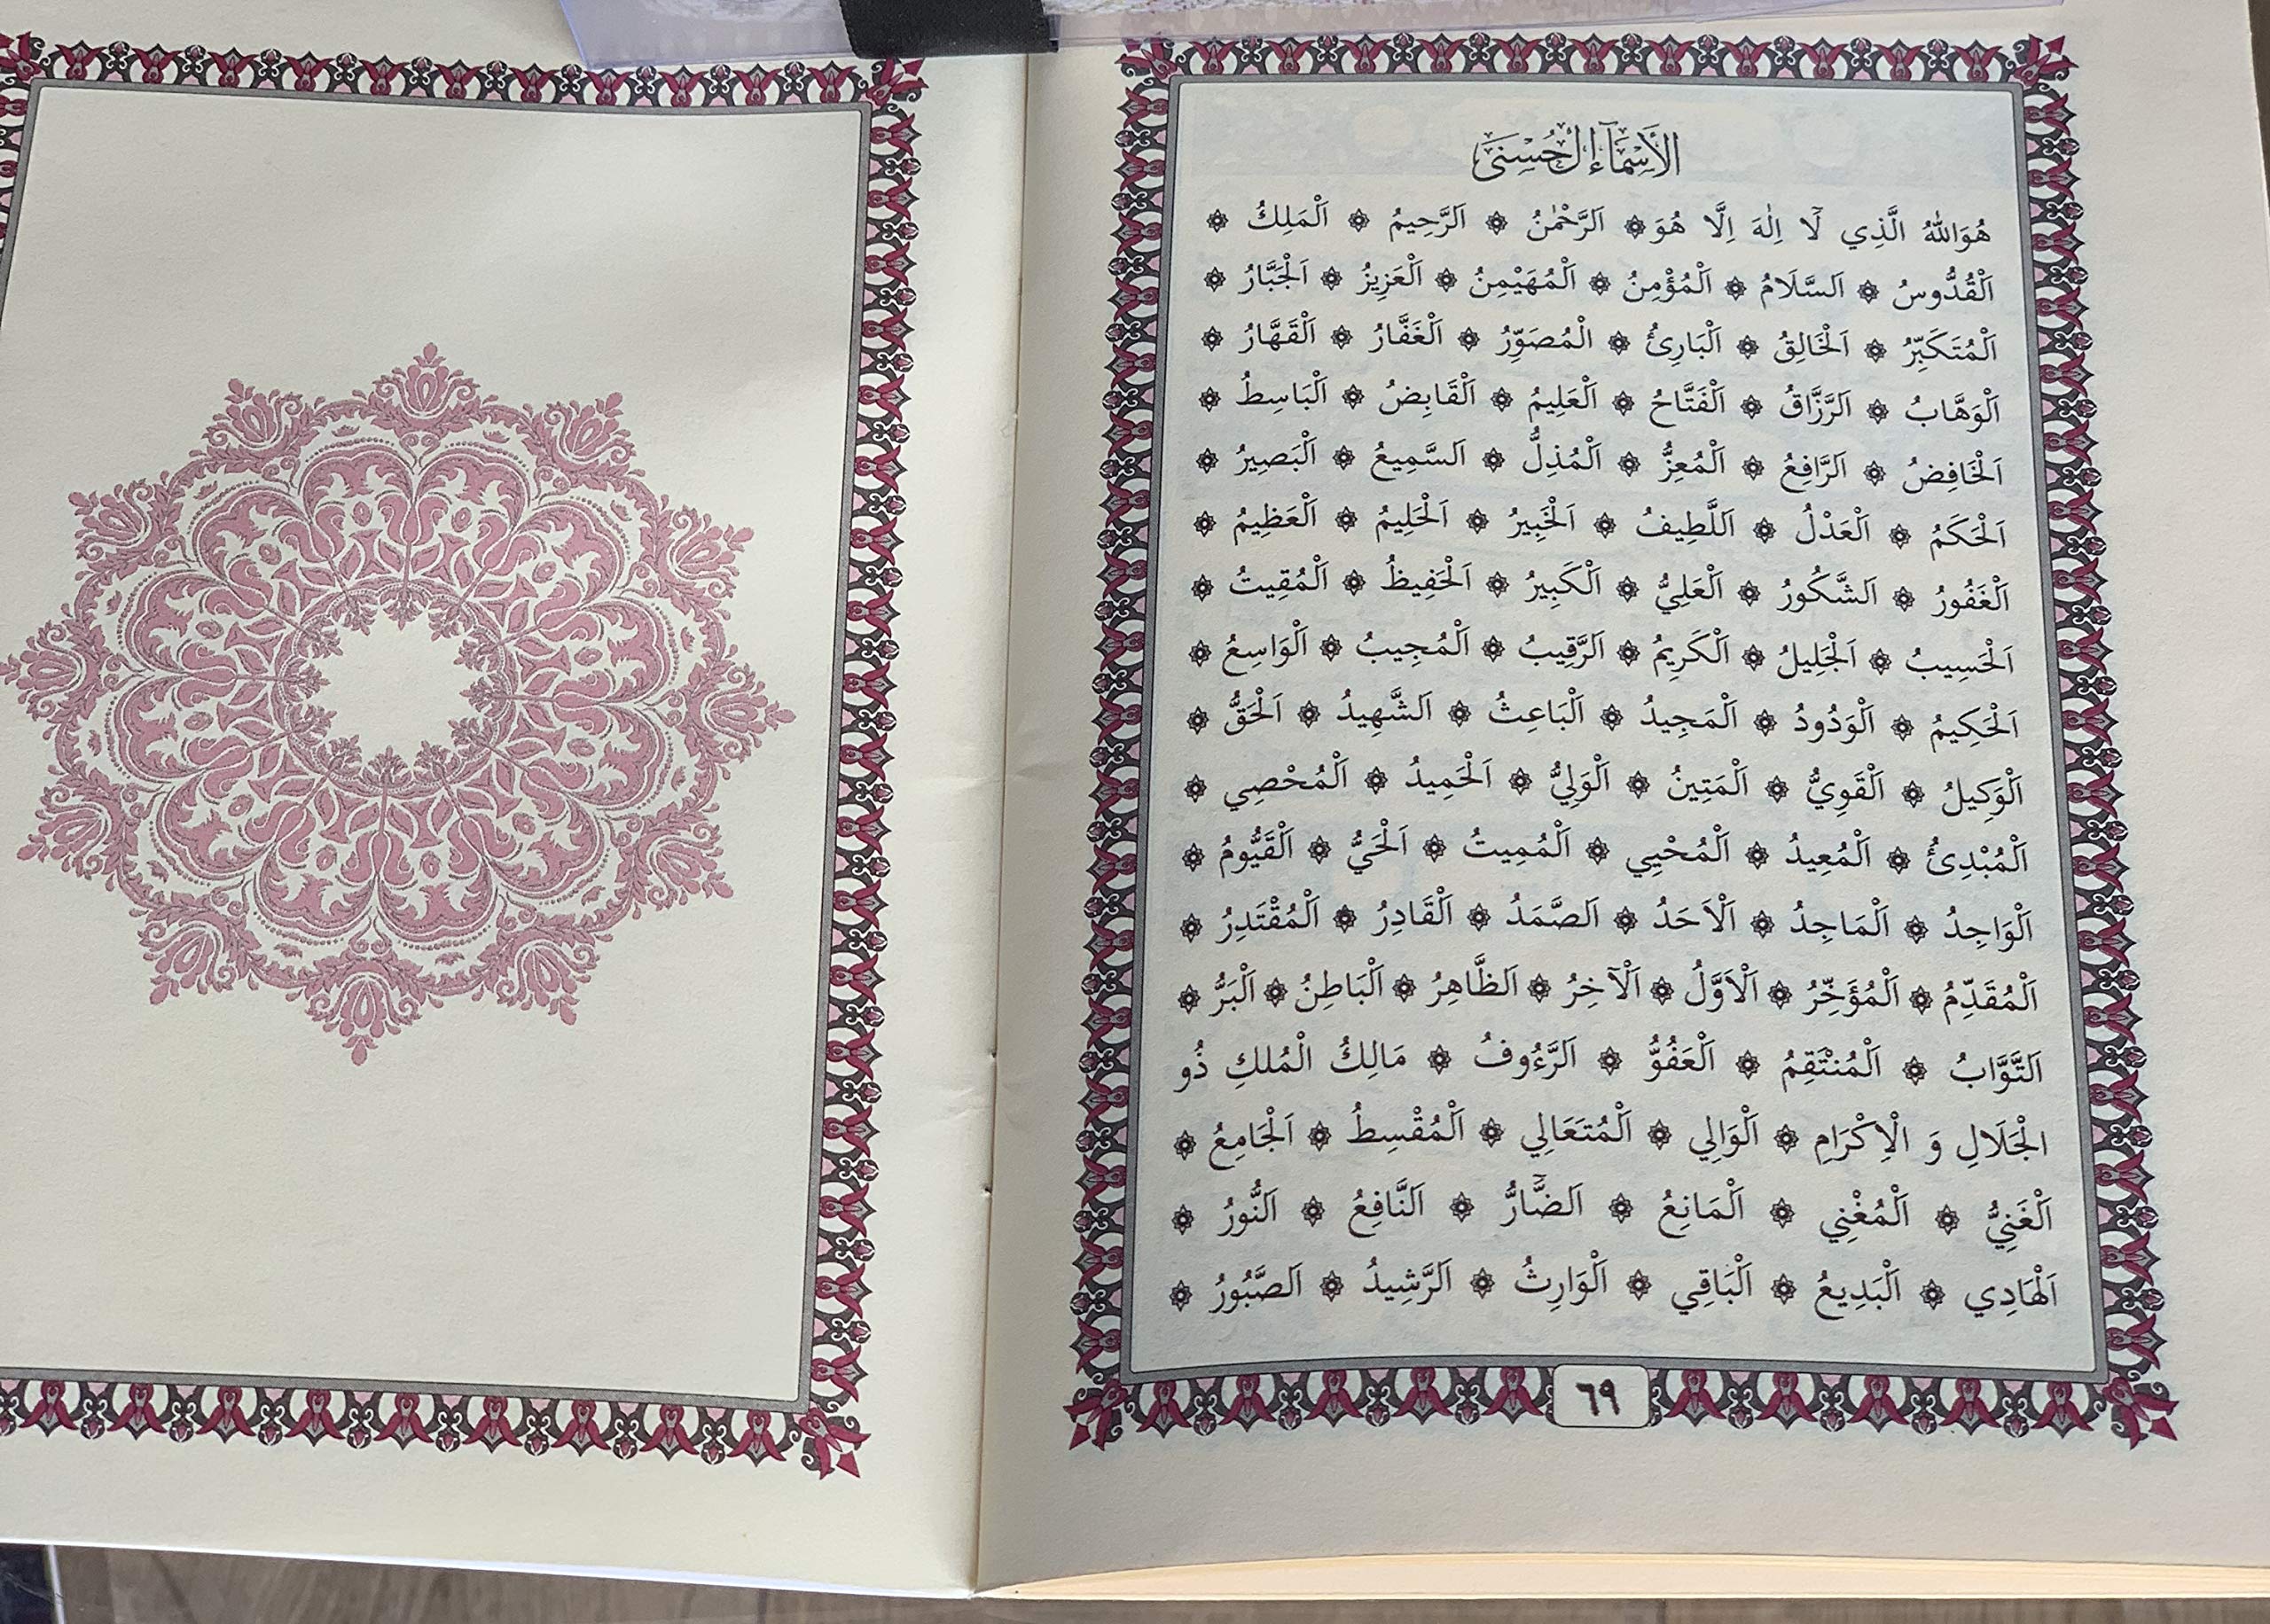 الأَسْمَآءُ الْحُسْنَى
هُوَ اللّٰهُ الَّذِي لَٓا اِلٰهَ اِلَّا هُوَ ۞ اَلرَّحْمٰنُ ۞ اَلرَّحِيمُ ۞ اَلْمَلِكُ ۞
اَلْقُدُّوسُ ۞ اَلسَّلَامُ ۞ اَلْمُؤْمِنُ ۞ اَلْمُهَيْمِنُ ۞ اَلْعَزِيزُ ۞ اَلْجَبَّارُ ۞
اَلْمُتَكَبِّرُ ۞ اَلْخَالِقُ ۞ اَلْبَارِئُ ۞ اَلْمُصَوِّرُ ۞ اَلْغَفَّارُ ۞ اَلْقَهَّارُ ۞
اَلْوَهَّابُ ۞ اَلرَّزَّاقُ ۞ اَلْفَتَّاحُ ۞ اَلْعَلِيمُ ۞ اَلْقَابِضُ ۞ اَلْبَاسِطُ ۞
اَلْخَافِضُ ۞ اَلرَّافِعُ ۞ اَلْمُعِزُّ ۞ اَلْمُذِلُّ ۞ اَلسَّمِيعُ ۞ اَلْبَصِيرُ ۞
اَلْحَكَمُ ۞ اَلْعَدْلُ ۞ اَللَّطِيفُ ۞ اَلْخَبِيرُ ۞ اَلْحَلِيمُ ۞ اَلْعَظِيمُ ۞
اَلْغَفُورُ ۞ اَلشَّكُورُ ۞ اَلْعَلِيُّ ۞ اَلْكَبِيرُ ۞ اَلْحَفِيظُ ۞ اَلْمُقِيتُ ۞
اَلْحَسِيبُ ۞ اَلْجَلِيلُ ۞ اَلْكَرِيمُ ۞ اَلرَّقِيبُ ۞ اَلْمُجِيبُ ۞ اَلْوَاسِعُ ۞
اَلْحَكِيمُ ۞ اَلْوَدُودُ ۞ اَلْمَجِيدُ ۞ اَلْبَاعِثُ ۞ اَلشَّهِيدُ ۞ اَلْحَقُّ ۞
اَلْوَكِيلُ ۞ اَلْقَوِيُّ ۞ اَلْمَتِينُ ۞ اَلْوَلِيُّ ۞ اَلْحَمِيدُ ۞ اَلْمُحْصِي ۞
اَلْمُبْدِئُ ۞ اَلْمُعِيدُ ۞ اَلْمُحْيِي ۞ اَلْمُمِيتُ ۞ اَلْحَيُّ ۞ اَلْقَيُّومُ ۞
اَلْوَاجِدُ ۞ اَلْمَاجِدُ ۞ اَلْاَحَدُ ۞ اَلصَّمَدُ ۞ اَلْقَادِرُ ۞ اَلْمُقْتَدِرُ ۞
اَلْمُقَدِّمُ ۞ اَلْمُؤَخِّرُ ۞ اَلْاَوَّلُ ۞ اَلْآخِرُ ۞ اَلظَّاهِرُ ۞ اَلْبَاطِنُ ۞ اَلْبَرُّ ۞
اَلتَّوَّابُ ۞ اَلْمُنْتَقِمُ ۞ اَلْعَفُوُّ ۞ اَلرَّءُوفُ ۞ مَالِكُ الْمُلكِ ذُو
الْجَلَالِ وَ الْاِكْرَامِ ۞ اَلْوَالِي ۞ اَلْمُتَعَالِي ۞ اَلْمُقْسِطُ ۞ اَلْجَامِعُ ۞
اَلْغَنِيُّ ۞ اَلْمُغْنِي ۞ اَلْمَانِعُ ۞ اَلضَّٓارُّ ۞ اَلنَّافِعُ ۞ اَلنُّورُ ۞
اَلْهَادِي ۞ اَلْبَدِيعُ ۞ اَلْبَاقِي ۞ اَلْوَارِثُ ۞ اَلرَّشِيدُ ۞ اَلصَّبُورُ ۞
٦٩